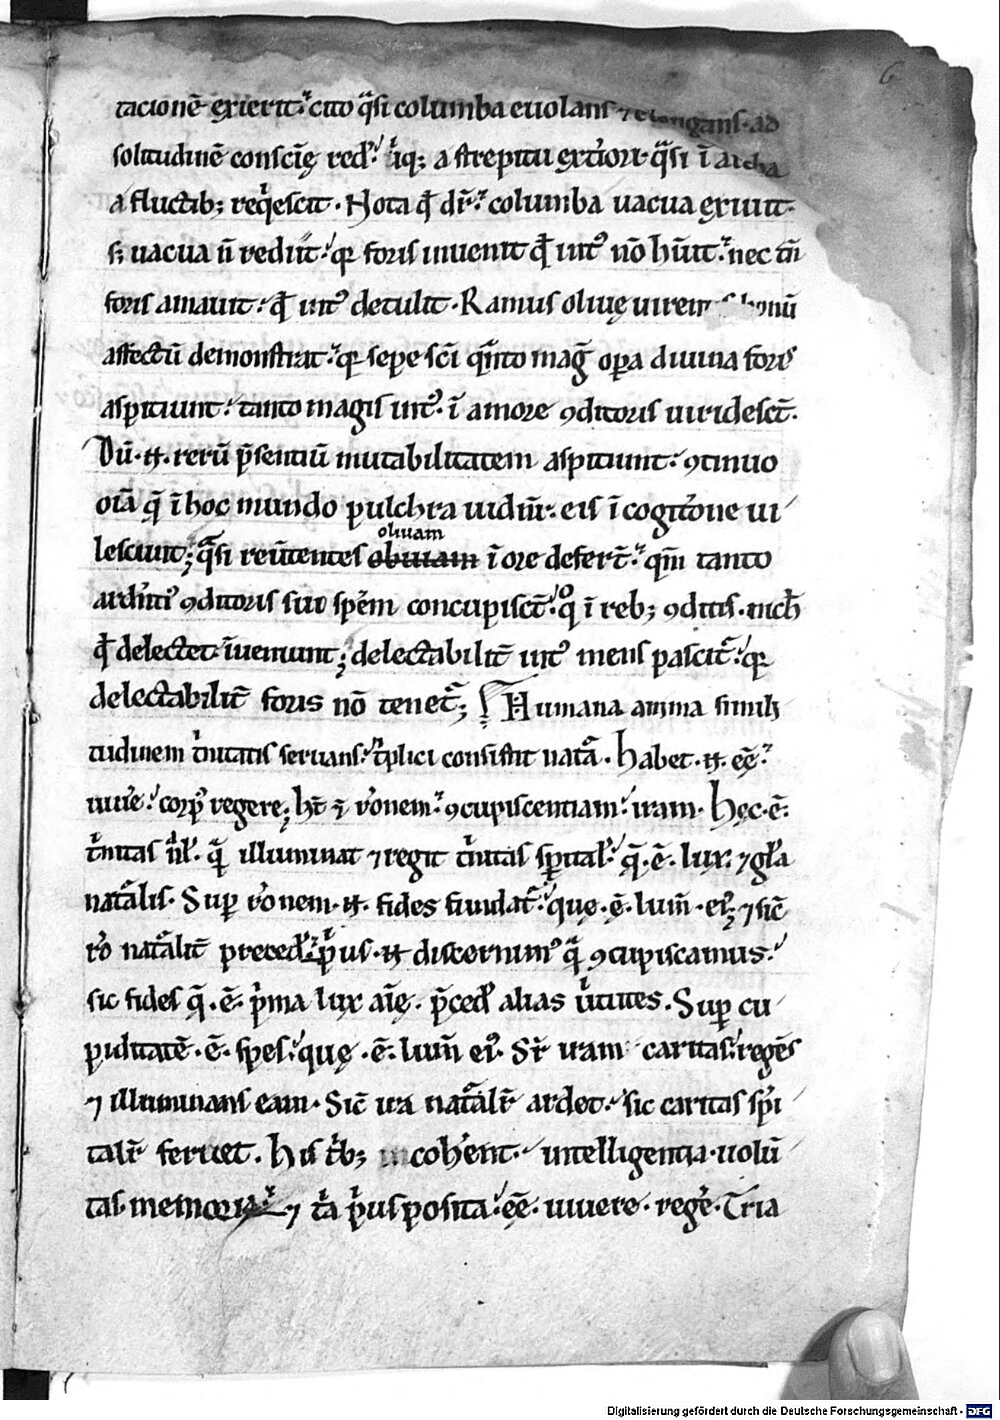 6
tacionē exierit. cito q̄si columba euolans ⁊ elongans. ad
solitudinē conscię̄ red᷒. ibiq; a strepitu ext̓iori q̄si ī archa
a fluctib; reqͥescit. Nota qđ dr̄. columba uacua exiuit.
s; uacua ñ rediit. qꝛ foris inuenit qđ int᷒ nō hūit. nec tn̄
foris amauit. qđ int᷒ detulit. Ramus oliuę uirens bonū
affectū demonstrat. qꝛ sepe sc̄i qͣnto maḡ oꝑa diuina foris
aspiciunt. tanto magis int᷒. ī amore ꝯditoris uiridesct̄.
Dū .n. rerū p̄sentiū mutabilitatem aspiciunt. ꝯtinuo
oīa q̄ ī hoc mundo pulchra uident̄. eis ī cogitōne ui
lesciunt; q̄si reūtentes obiuam oliuam ī ore defert̄. qm̄ tanto
ardēti᷒ ꝯditoris sui spēm concupisct̄. qͦ ī reb; ꝯditis. nich̄
qđ delectet īueniunt; delectabilit̄ int᷒ mens pascit̄. qꝛ
delectabilit̄ foris nō tenet̄; Humana anima simili
tudinem t̓nitatis seruans. t̓plici consistit natͣ. habet .n. eę̄.
uiuē̓. corp᷒ vegere; ht̄ ⁊ rōnem. ꝯcupiscentiam. iram. hęc .ē.
t̓nitas nͣl̄. qͣ̄ illuminat ⁊ regit t̓nitas spͥital̄. q̄ .ē. lux. ⁊ gl̄a
natͣlis. Suꝑ rōnem .n. fides fundat̄. quę .ē. lum̄ .ei᷒; ⁊ sic̄
rō natͣlit̄ preced̄. p̓us .n. discernim᷒ qͣ̄ ꝯcupiscamus.
sic fides q̄ .ē. p̓ma lux aīę. p̄ced̄ alias ūtutes. Suꝑ cu
piditatē .ē. spes. quę .ē. lum̄ ei᷒. Sr̄ iram caritas. regēs
⁊ illuminans eam. Sic̄ ira natͣlit̄ ardet. sic caritas spͥi
talit̄ feruet. his t̓b; coh̓ent. intelligentia. uolū
tas. memoria. ⁊ t̓a p̓us posita. eę̄. uiuere. regē̓. Tria
Digitalisierung gefördert durch die Deutsche Forschungsgemeinschaft - DFG